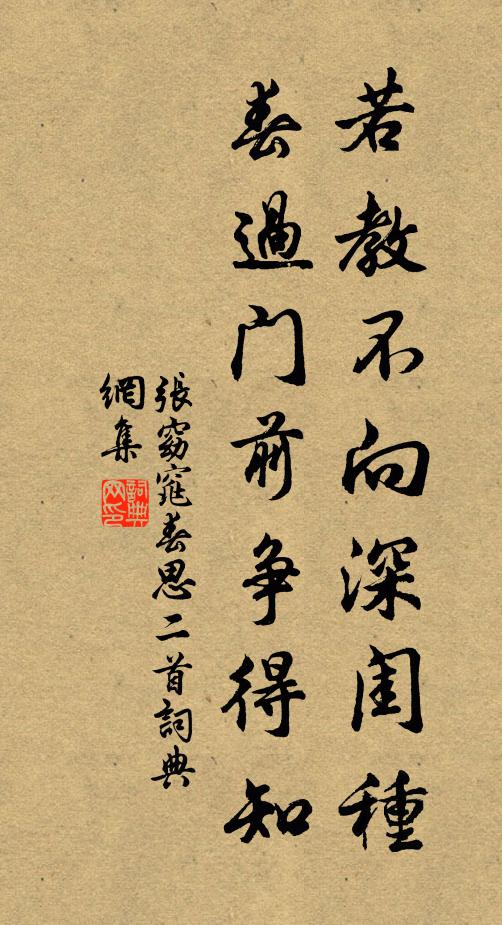 若教不向深闺種
春過门前争得知
張窈窕春思二首詞典
網集
詞典
网印